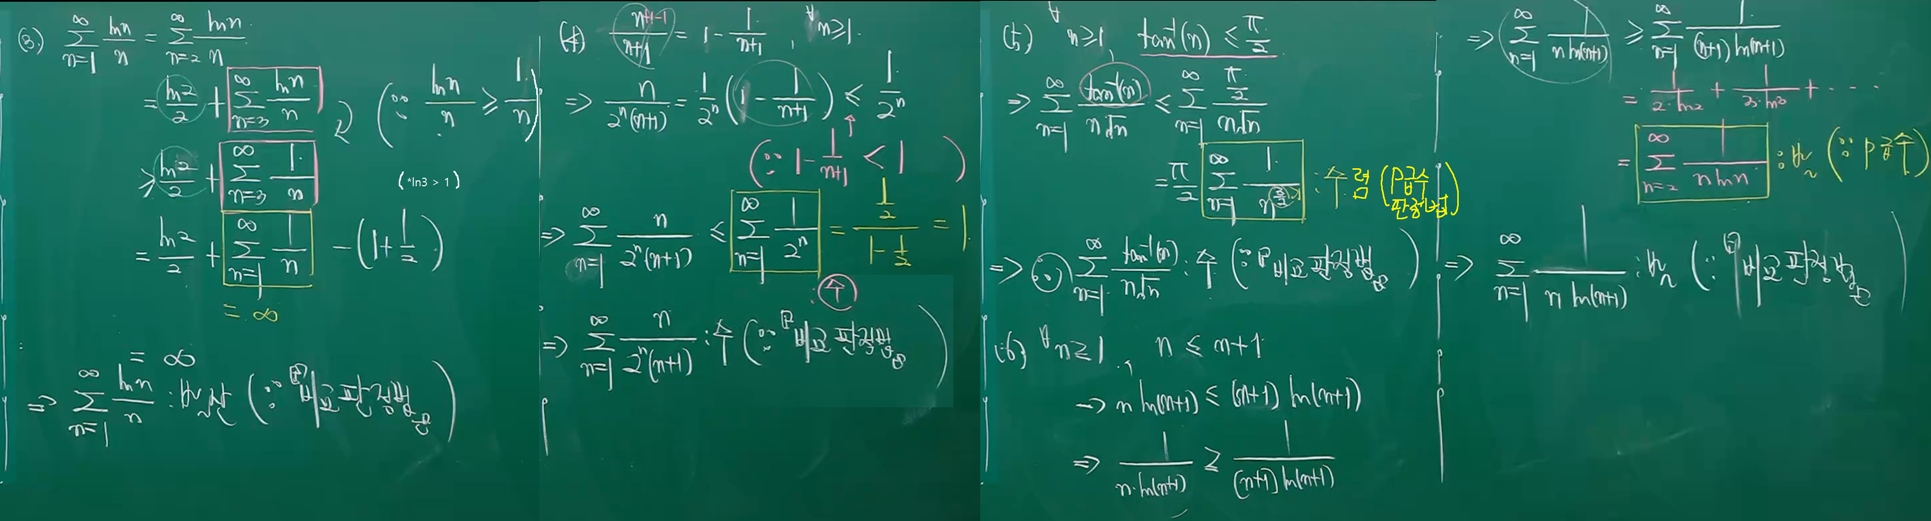 (3) ∑_{n=1}^{∞} ln n / n = ∑_{n=2}^{∞} ln n / n
= ln2/2 + ∑_{n=3}^{∞} ln n / n (∵ ln n / n ≥ 1/n)
≥ ln2/2 + ∑_{n=3}^{∞} 1/n (*ln3 > 1)
= ln2/2 + ∑_{n=1}^{∞} 1/n - (1 + 1/2)
= ∞
= ∞
⇒ ∑_{n=1}^{∞} ln n / n : 발산 (∵ 비교판정법)
(4) (n+1-1)/(n+1) = 1 - 1/(n+1), ∀n≥1.
⇒ n/(2^n(n+1)) = 1/2^n (1 - 1/(n+1)) ≤ 1/2^n
(∵ 1 - 1/(n+1) < 1)
⇒ ∑_{n=1}^{∞} n/(2^n(n+1)) ≤ ∑_{n=1}^{∞} 1/2^n = (1/2)/(1 - 1/2) = 1.
: 수
⇒ ∑_{n=1}^{∞} n/(2^n(n+1)) : 수 (∵ 비교판정법)
(5) ∀n≥1, tan⁻¹(n) ≤ π/2
⇒ ∑_{n=1}^{∞} tan⁻¹(n)/(n√n) ≤ ∑_{n=1}^{∞} (π/2)/(n√n)
= π/2 ∑_{n=1}^{∞} 1/n^{3/2} : 수렴 (p급수 판정법)
⇒ ∑_{n=1}^{∞} tan⁻¹(n)/(n√n) : 수 (∵ 비교판정법)
(6) ∀n≥1, n ≤ n+1
→ n ln(n+1) ≤ (n+1) ln(n+1)
⇒ 1/(n·ln(n+1)) ≥ 1/((n+1) ln(n+1))
⇒ ∑_{n=1}^{∞} 1/(n ln(n+1)) ≥ ∑_{n=1}^{∞} 1/((n+1) ln(n+1))
= 1/(2·ln2) + 1/(3·ln3) + ····
= ∑_{n=2}^{∞} 1/(n ln n) : 발 (∵ p급수)
⇒ ∑_{n=1}^{∞} 1/(n ln(n+1)) : 발 (∵ 비교판정법)